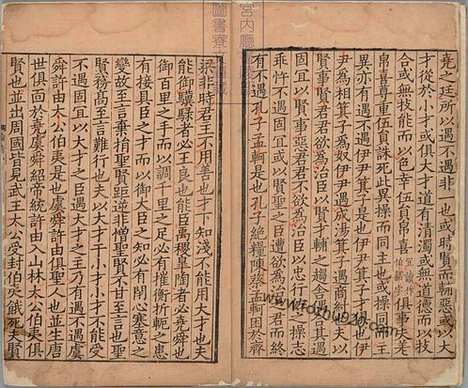 堯之廷所以遇不遇非一也或時賢而輔惡或以大
才從於小才或俱大才道有清濁或無道德而以技
合或無技能而以色幸伍員帛喜俱事夫差
帛喜尊重伍員誅死此異操而同主也或操同而主
異亦有遇不遇伊尹箕子是也伊尹箕子才俱也伊
尹為相箕子為奴伊尹遇成湯箕子遇商紂也夫以
賢事賢君君欲為治臣以賢才輔之趨舍偶合其遇
固宜以賢事惡君君不欲為治臣以忠行佐之操志
乖忤不遇固宜或以賢聖之臣遭欲為治之君而終
有不遇孔子孟軻是也孔子絶糧陳蔡孟軻困於齊
梁非時君主不用善也才下知淺不能用大才也夫
能御驥騄者必王良也能臣禹稷皋陶者必堯舜也
御百里之手而以調千里之足必有摧衡折軛之患
有接具臣之才而以御大臣之知必有閉心塞意之
變故至言棄捐聖賢距逆非憎聖賢不甘至言也聖
賢務高至言難行也夫以大才干小才小才不能受
不遇固宜以大才之臣遇大才之主乃有遇不遇虞
舜許由太公伯夷是也虞舜許由俱聖人也並生唐
世俱面於堯虞舜紹帝統許由入山林太公伯夷俱
賢也並出周國皆見武王太公受封伯夷餓死夫賢